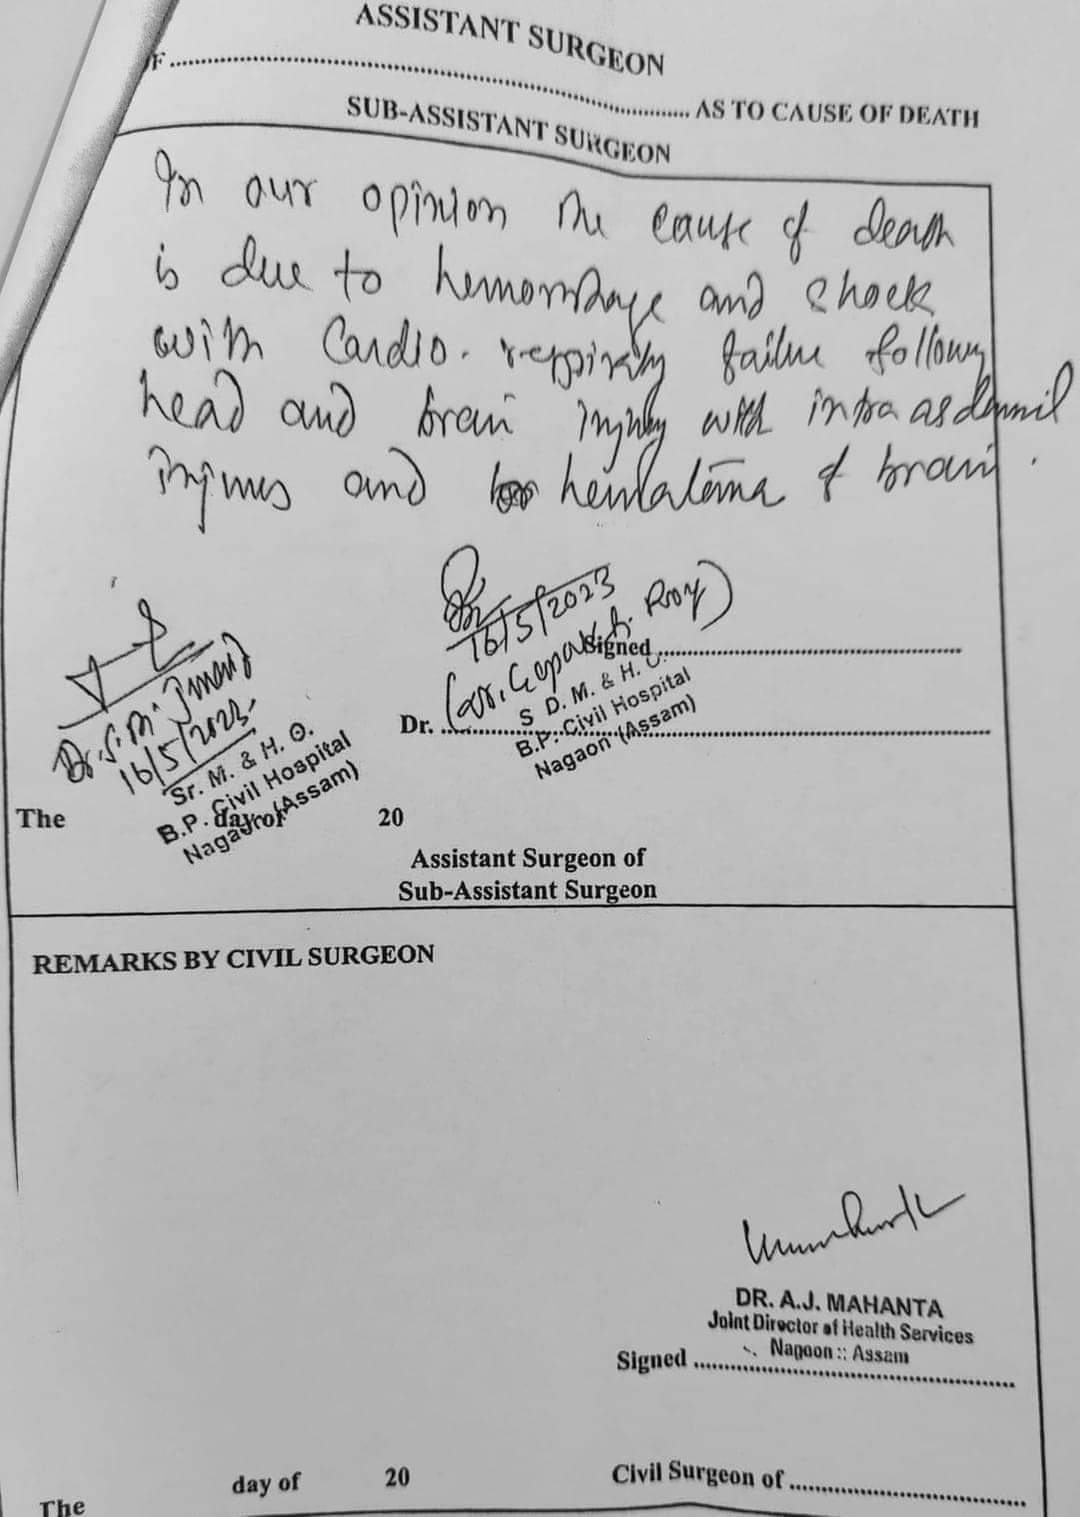 ASSISTANT SURGEON
OF .......... AS TO CAUSE OF DEATH
SUB-ASSISTANT SURGEON
In our opinion the cause of death
is due to hemorrhage and shock
with Cardio-respiratory failure following
head and brain injury with
injuries and hematoma of brain.
16/5/2023
Roy)
Signed ..........
Dr. ..........
S D. M. & H. O.
B.P. Civil Hospital
Nagaon (Assam)
Dr. S.
16/5/2023
Sr. M. & H. O.
B.P. Civil Hospital
Nagaon (Assam)
The day of 20
Assistant Surgeon of
Sub-Assistant Surgeon
REMARKS BY CIVIL SURGEON
DR. A.J. MAHANTA
Joint Director of Health Services
Nagaon :: Assam
Signed ..........
The day of 20 Civil Surgeon of ..........